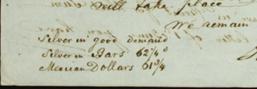 will take place
We remain
Silver in good demand
Silver in Bars 62¼ d
Mexican Dollars 61¾